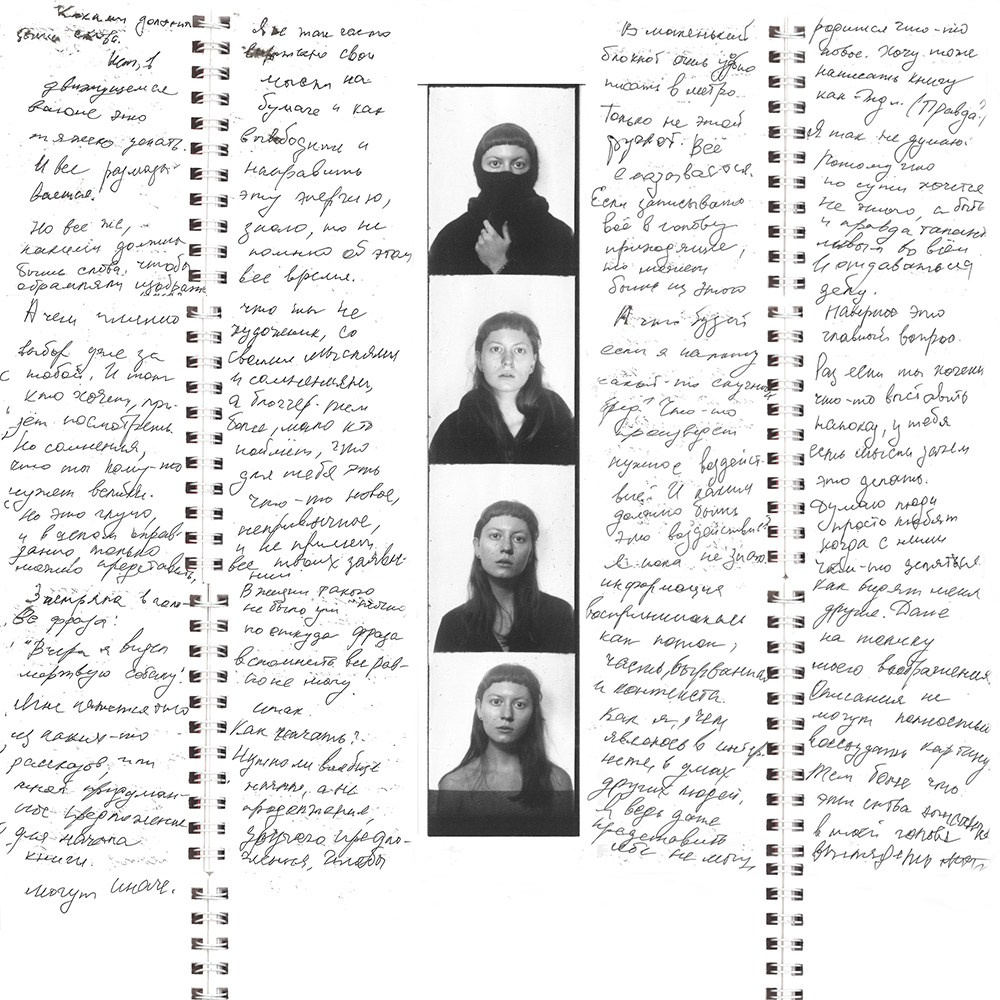 Какими должны
быть слова.
Ист, 1
движущемся
вагоне это
тяжело делать.
И все размазы-
вается.
Но все же,
какими должны
быть слова, чтобы
обрамляли изображ
А чем
выбор уже за
тобой. И тот
кто хочет, при-
дёт посмотреть.
Но сомнения,
что ты кому-то
нужен велики.
Но это глупо,
и в целом оправ-
данно, только
можно представить,
Застряла в голо-
ве фраза:
"Вчера я видел
мёртвую собаку".
Мне кажется это
из каких-то
рассказов, или
такая придуман-
ное предложение
для начала
книги.
могут иначе.
Я не так часто
выражаю свои
мысли на
бумаге и как
высвободить и
направить
эту энергию,
знаю, но не
помню об этом
все время.
что ты не
художник, со
своими мыслями
и сомнениями,
а блоггер. Тем
более, мало кто
поймёт, что
для тебя это
что-то новое,
непривычное,
и не примет
все твоих
В жизни такого
не было
но откуда фраза
вспомнить все рав-
но не могу.
итак
Как начать?
Нужно ли вообще
начало, а не
продолжение,
другого предло-
жения, чтобы
В маленький
блокнот очень удобно
писать в метро.
Только не этой
ручкой. Всё
смазывается.
Если записывать
всё в голову
приходящее,
то может
быть из этого
А что будет
если я напишу
какой-то скучный
бред? Что-то
произведёт
нужное воздейст-
вие? И каким
должно быть
это воздействие
я пока не знаю.
информация
воспринимаем
как поток,
часть, вырванная
из контекста.
Как я, чем
являюсь в интер-
нете, в умах
других людей,
я ведь даже
представить
себе не могу,
родится что-то
новое. Хочу тоже
написать книгу
как (Правда?)
Я так не думаю
Потому что
по сути хочется
не этого, а быть
и правда талант-
ливый во всём
И отдаваться
делу.
Наверное это
главный вопрос.
Раз если ты хочешь
что-то выставить
напоказ, у тебя
есть мысли зачем
это делать.
Думаю люди
просто любят
когда с ними
чем-то делятся
как видят меня
другие. Даже
на толику
моего воображения
Описания не
могут полностью
воссоздать картину.
Тем более что
эти слова
в твоей голове
выглядеть